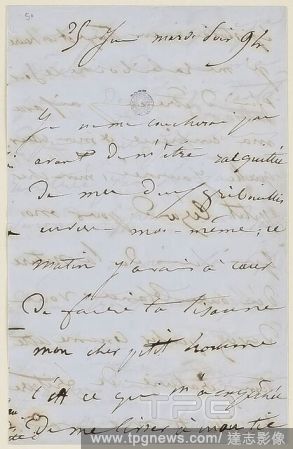 25 Jan mardi soir 9h
Je ne me coucherai pas
avant de m'être acquittée
de mes deux gribouillis
envers moi-même, ce
matin j'avais à cœur
de faire ta tisane
mon cher petit homme
c'est ce qui m'a empêchée
de me livrer à mon tic
TPG
www.tpgnews.com / 達志影像